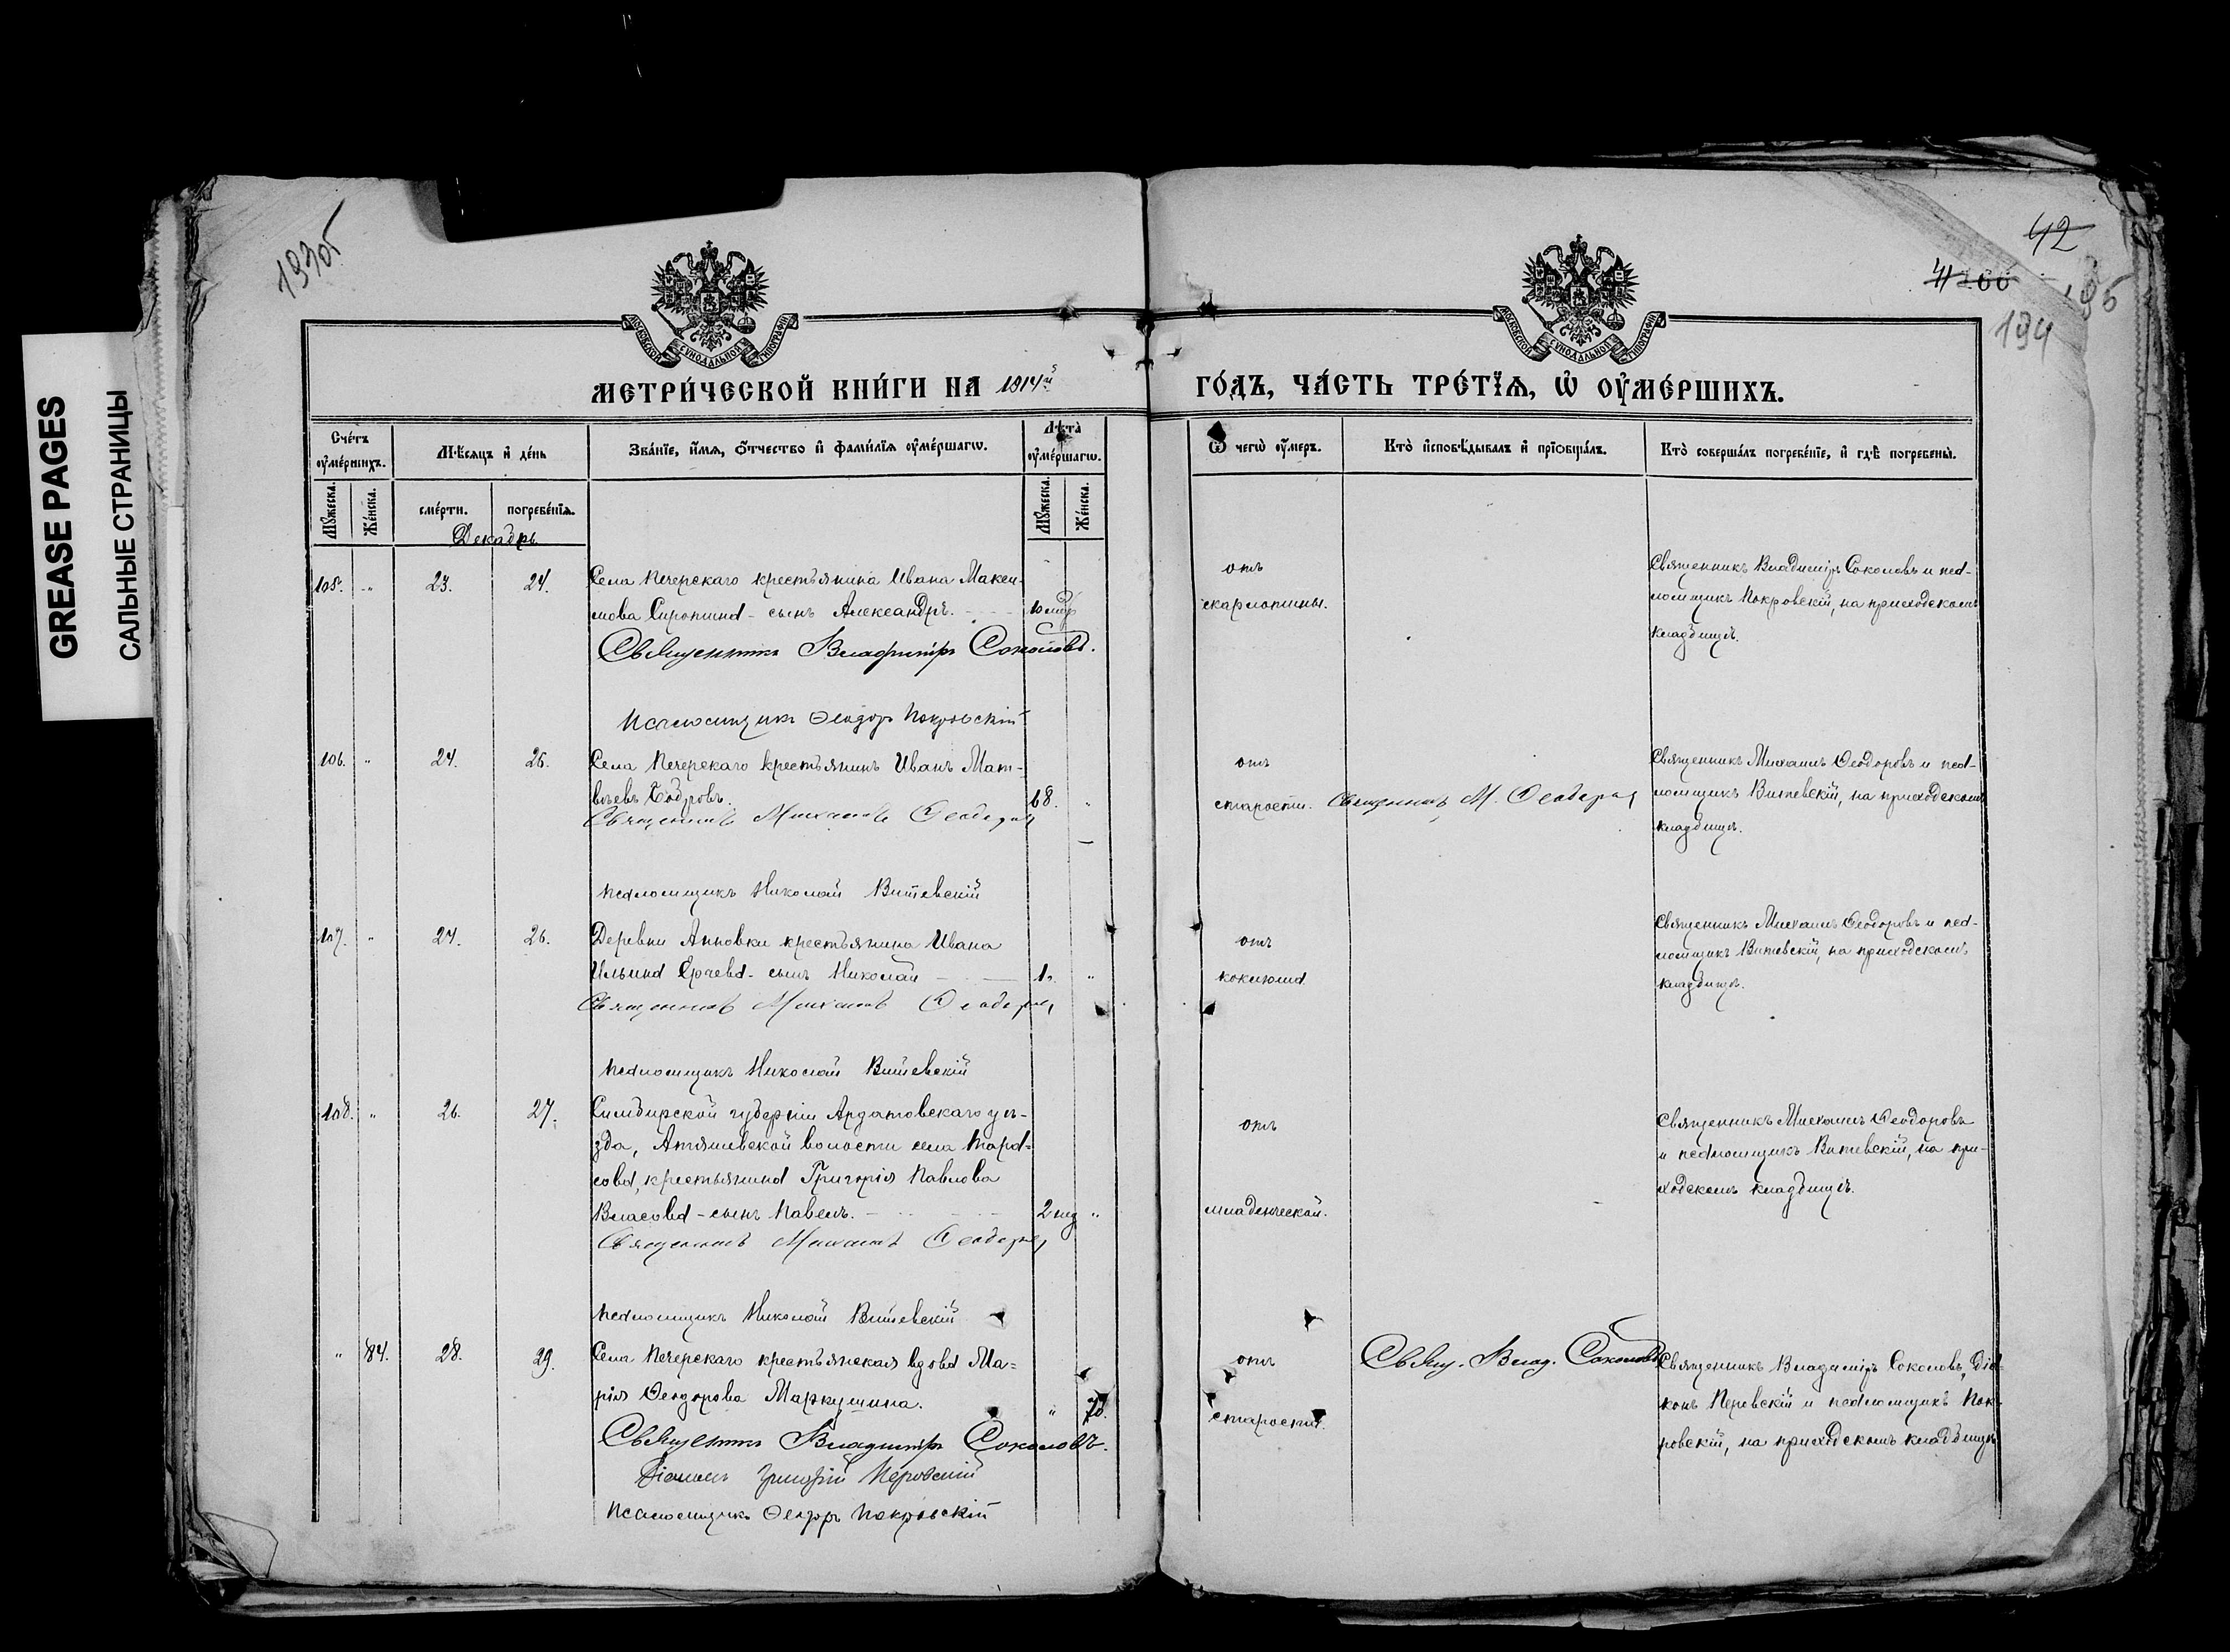 GREASE PAGES
САЛЬНЫЕ СТРАНИЦЫ
193об
42
194
МОСКОВСКОЙ СѴНОДАЛЬНОЙ ТИПОГРАФІИ
МОСКОВСКОЙ СѴНОДАЛЬНОЙ ТИПОГРАФІИ
МЕТРИ́ЧЕСКОЙ КНИ́ГИ НА 1914й
ГО́ДЪ, ЧА́СТЬ ТРЕ́ТЇѦ, Ѡ҆ ОУ҆МЕ́РШИХЪ.
Сче́тъ оу҆ме́ршихъ.
Мѣ́сяцъ и҆ де́нь
Зва́нїе, и҆́мѧ, ѻ҆́тчество и҆ фами́лїѧ оу҆ме́ршагѡ.
Лѣта̀ оу҆ме́ршагѡ.
Ѿ чегѡ̀ оу҆́меръ.
Кто̀ и҆сповѣ́дывалъ и҆ прїѻбща́лъ.
Кто̀ соверша́лъ погребе́нїе, и҆ гдѣ̀ погребены̀.
Мꙋ́жеска.
Же́нска.
сме́рти.
погребе́нїѧ.
Мꙋ́жеска.
Же́нска.
Декабрь
105. " 23. 24.
Села Печерскаго крестьянина Ивана Макси-
мова Сиротина - сынъ Александръ. 10 мѣс
Священникъ Владиміръ Соколовъ.
Псаломщикъ Ѳеодоръ Покровскій
отъ
скарлотины.
Священникъ Владиміръ Соколовъ и пса-
ломщикъ Покровскій, на приходскомъ
кладбищѣ.
106. " 24. 26.
Села Печерскаго крестьянинъ Иванъ Мат-
вѣевъ Бодровъ. 68. "
Священникъ Михаилъ Ѳеодоровъ
Псаломщикъ Николай Витевскій
отъ
старости.
Священникъ М. Ѳеодоровъ
Священникъ Михаилъ Ѳеодоровъ и пса-
ломщикъ Витевскій, на приходскомъ
кладбищѣ.
107. " 24. 26.
Деревни Анновки крестьянина Ивана
Ильина - сынъ Николай 1. "
Священникъ Михаилъ Ѳеодоровъ
Псаломщикъ Николай Витевскій
отъ
коклюша.
Священникъ Михаилъ Ѳеодоровъ и пса-
ломщикъ Витевскій, на приходскомъ
кладбищѣ.
108. " 26. 27.
Симбирской губерніи Ардатовскаго уѣ-
зда, Атяшевской волости села Тара-
сова, крестьянина Григорія Павлова
Власова - сынъ Павелъ. 2 нед "
Священникъ Михаилъ Ѳеодоровъ
Псаломщикъ Николай Витевскій
отъ
младенческой.
Священникъ Михаилъ Ѳеодоровъ
и псаломщикъ Витевскій, на при-
ходскомъ кладбищѣ.
" 84. 28. 29.
Села Печерскаго крестьянская вдова Ма-
рія Ѳеодорова Маркушина. "
Священникъ Владиміръ Соколовъ.
Діаконъ Григорій Перовскій
Псаломщикъ Ѳеодоръ Покровскій
отъ
старости.
Свящ. Влад. Соколовъ
Священникъ Владиміръ Соколовъ, діа-
конъ Перовскій и псаломщикъ Пок-
ровскій, на приходскомъ кладбищѣ